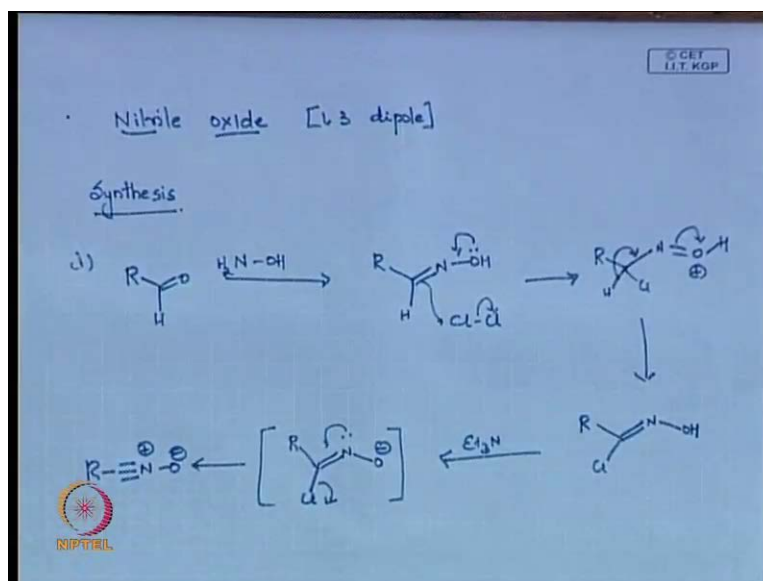 © CET
I.I.T. KGP
Nitrile oxide [1,3 dipole]
Synthesis.
1) R O H H2N-OH R H N-OH Cl-Cl R H Cl N=O-H ⊕
R Cl N-OH
Et3N
[ R Cl N-O ⊖ ]
R-≡N-O ⊕ ⊖
NPTEL